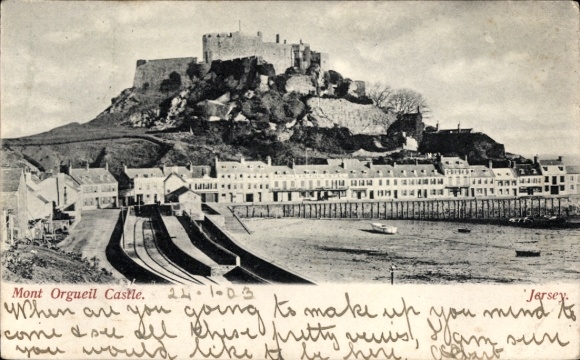 Mont Orgueil Castle. 24-1-03 Jersey.
When are you going to make up you mind to
come & see all these pretty views, I am sure
you would like to be here